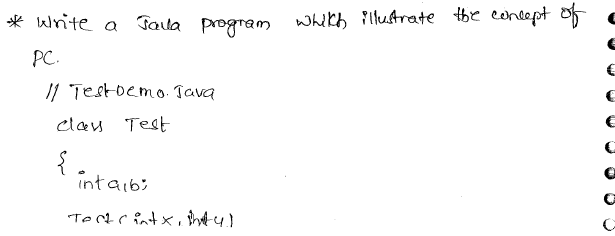 * Write a Java program which illustrate the concept of
PC.
// TestDemo.Java
class Test
{
int a,b;
Test (int x, int y)